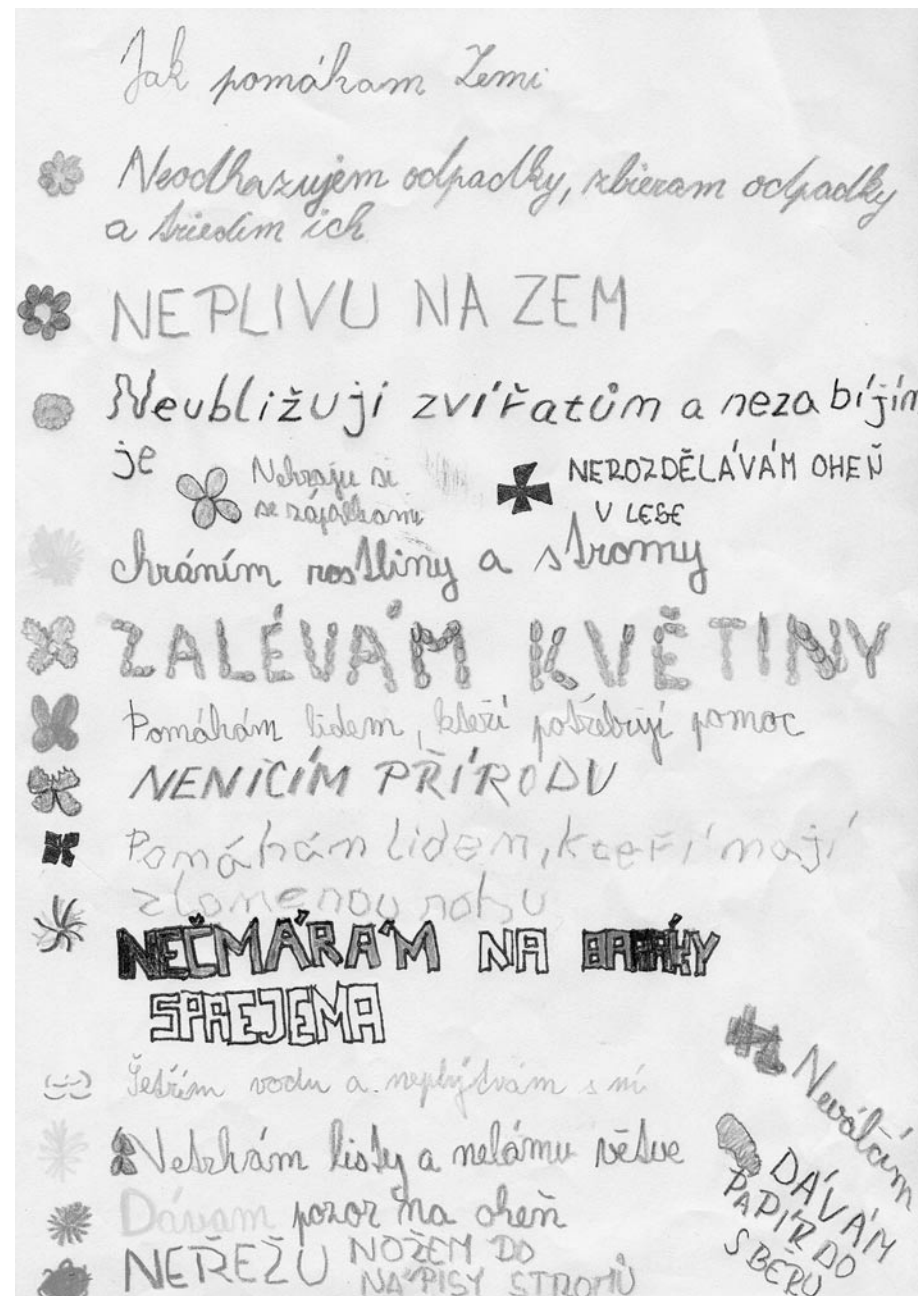 Jak pomáham Zemi
Neodhazujem odpadky, zbieram odpadky
a triedim ich
NEPLIVU NA ZEM
Neubližuji zvířatům a nezabíjím
je
Nehraju si
se zápalkami
NEROZDĚLÁVÁM OHEŇ
V LESE
chráním rostliny a stromy
ZALÉVÁM KVĚTINY
Pomáhám lidem, kteří potřebují pomoc
NENIČÍM PŘÍRODU
Pomáhám lidem, kteří mají
zlomenou nohu
NEČMÁRÁM NA BARÁKY
SPREJEMA
Šetřím vodu a neplýtvám s ní
Netrhám listy a nelámu větve
Dávam pozor na oheň
NEŘEŽU NOŽEM DO
NÁPISY STROMŮ
Neválčím
DÁVÁM
PAPÍR DO
SBĚRU